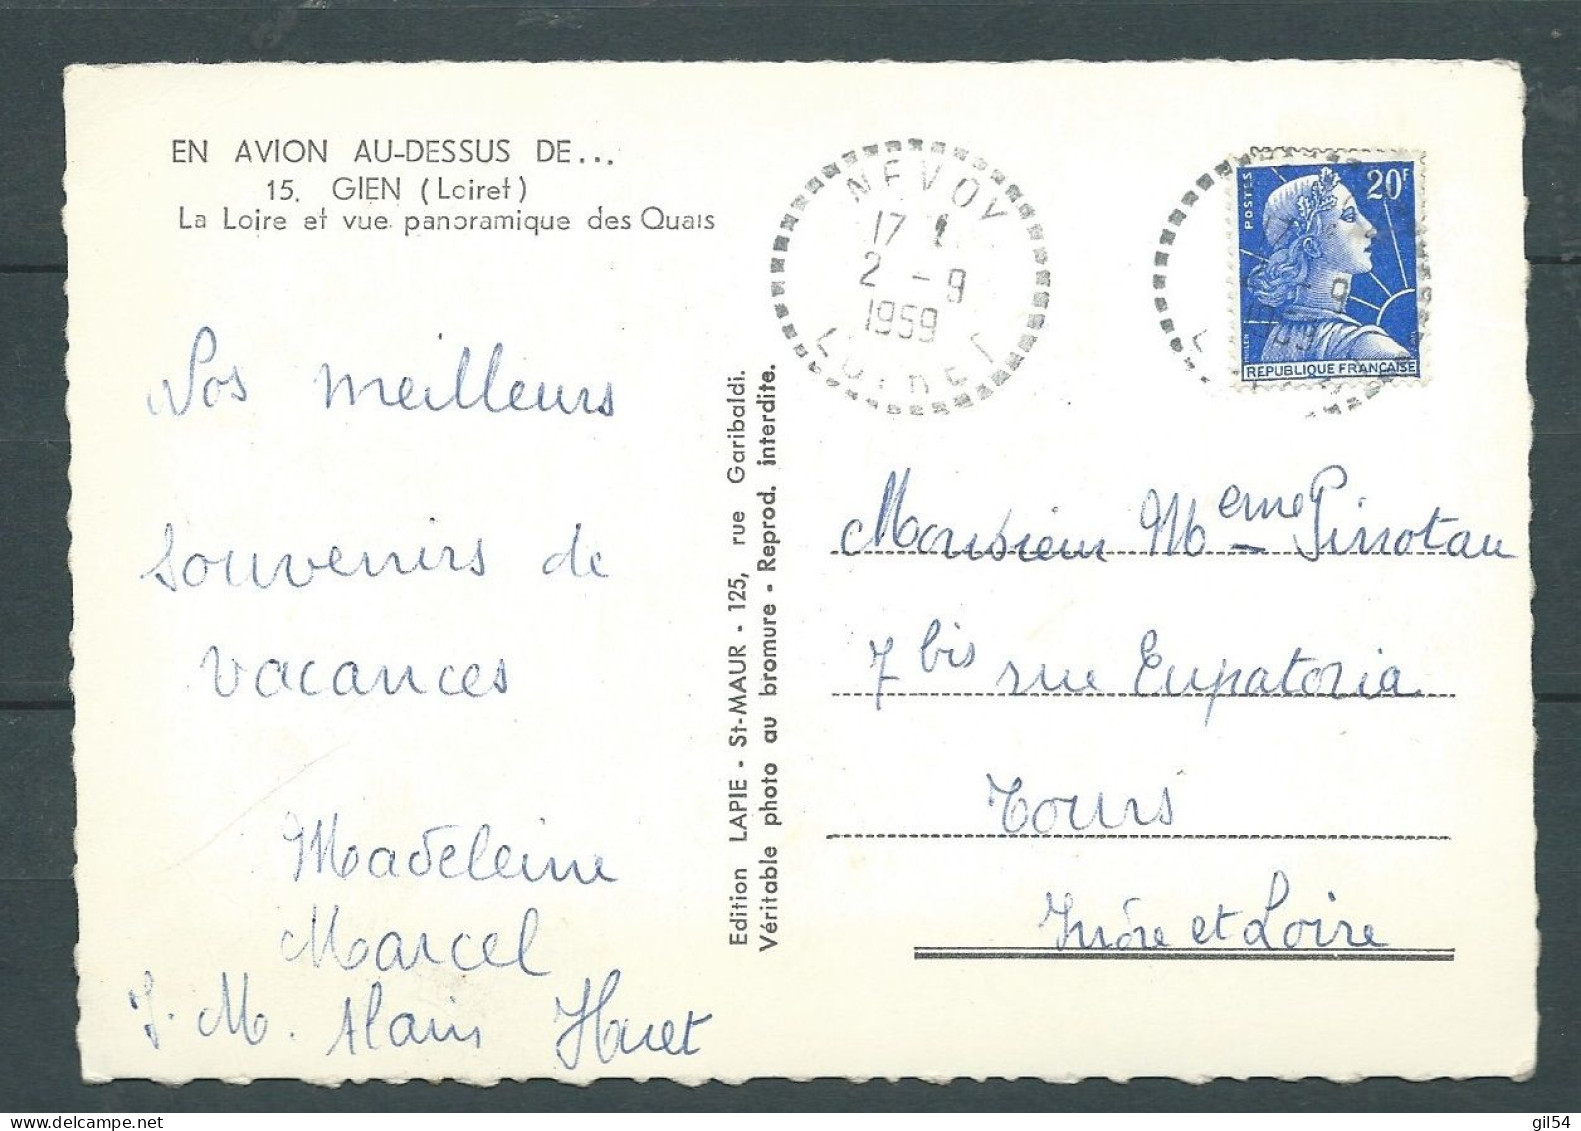 EN AVION AU-DESSUS DE...
15. GIEN (Loiret)
La Loire et vue panoramique des Quais
Nos meilleurs
souvenirs de
vacances
Madeleine
Marcel
J. M. Alain Huet
Edition LAPIE - St-MAUR - 125, rue Garibaldi.
Véritable photo au bromure - Reprod. interdite.
NEVOY
17
2 - 9
1959
LOIRET
POSTES
20F
2 - 9
1959
REPUBLIQUE FRANÇAISE
Monsieur Meme Pinotau
7 bis rue Eupatoria
Tours
Indre et Loire
gil54